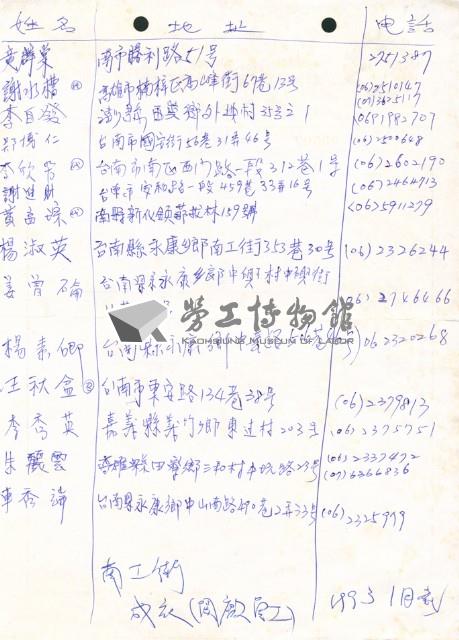 姓名 地址 電話
黃 榮 南市勝利路51號 2751387
謝水櫓 高雄市楠梓區 街67巷12號 (06)2510147
(07)3625117
李自發 西嶼鄉外垵村 1 069982707
仁 台南市國安街56巷31弄46號 (06)2500648
李欣 台南市南區西門路一段312巷1號 (06)2602190
謝進財 台南市安和路一段459巷33弄16號 (06)2464713
黃 南縣新化鎮 林159號 (06)5911279
楊淑英 台南縣永康鄉南工街353巷30號 (06)2326244
姜曾 台南縣永康鄉中 村中 街
(06)2746466
勞工博物館
KAOHSIUNG MUSEUM OF LABOR
楊素卿 台南縣永康 號 06 2320268
王秋盒 台南市東安路134巷38號 (06)2379813
李喬英 嘉義縣義竹鄉東过村203號 (06)2375751
朱麗雲 高雄縣田寮鄉三和村中坑路23號 (06)2337472
(07)6366836
車秀 台南縣永康鄉中山南路490巷2弄33號 (06)2325979
南工街
成衣(關廠員工) 1993 1月